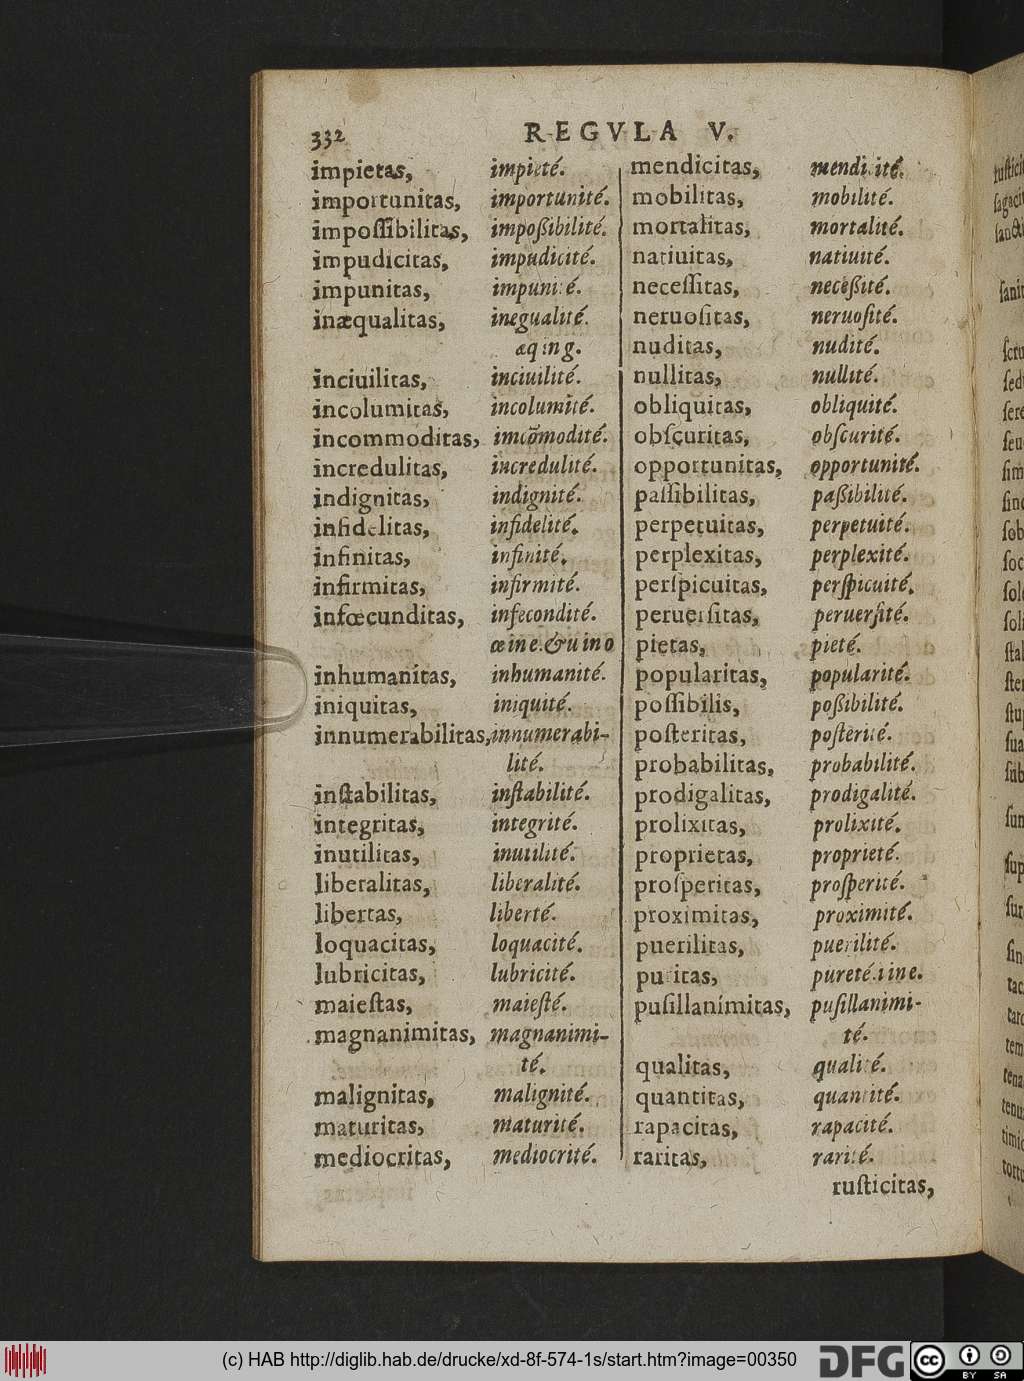 332
REGVLA V.
impietas, impieté.
importunitas, importunité.
impoſſibilitas, impoßibilité.
impudicitas, impudicité.
impunitas, impunité.
inæqualitas, inegualité.
æqing.
inciuilitas, inciuilité.
incolumitas, incolumité.
incommoditas, imcõmodité.
incredulitas, incredulité.
indignitas, indignité.
infidelitas, infidelité.
infinitas, infinité.
infirmitas, infirmité.
infœcunditas, infecondité.
œ in e. & u in o
inhumanitas, inhumanité.
iniquitas, iniquité.
innumerabilitas, innumerabi-
lité.
inſtabilitas, inſtabilité.
integritas, integrité.
inutilitas, inutilité.
liberalitas, liberalité.
libertas, liberté.
loquacitas, loquacité.
lubricitas, lubricité.
maieſtas, maieſté.
magnanimitas, magnanimi-
té.
malignitas, malignité.
maturitas, maturité.
mediocritas, mediocrité.
mendicitas, mendicité.
mobilitas, mobilité.
mortalitas, mortalité.
natiuitas, natiuité.
neceſſitas, neceßité.
neruoſitas, neruoſité.
nuditas, nudité.
nullitas, nullité.
obliquitas, obliquité.
obſcuritas, obſcurité.
opportunitas, opportunité.
paſſibilitas, paßibilité.
perpetuitas, perpetuité.
perplexitas, perplexité.
perſpicuitas, perſpicuité.
peruerſitas, peruerſité.
pietas, pieté.
popularitas, popularité.
poſſibilis, poßibilité.
poſteritas, poſterité.
probabilitas, probabilité.
prodigalitas, prodigalité.
prolixitas, prolixité.
proprietas, proprieté.
proſperitas, proſperité.
proximitas, proximité.
puerilitas, puerilité.
puritas, pureté. i in e.
puſillanimitas, puſillanimi-
té.
qualitas, qualité.
quantitas, quantité.
rapacitas, rapacité.
raritas, rarité.
ruſticitas,
(c) HAB http://diglib.hab.de/drucke/xd-8f-574-1s/start.htm?image=00350
DFG
cc
BY SA